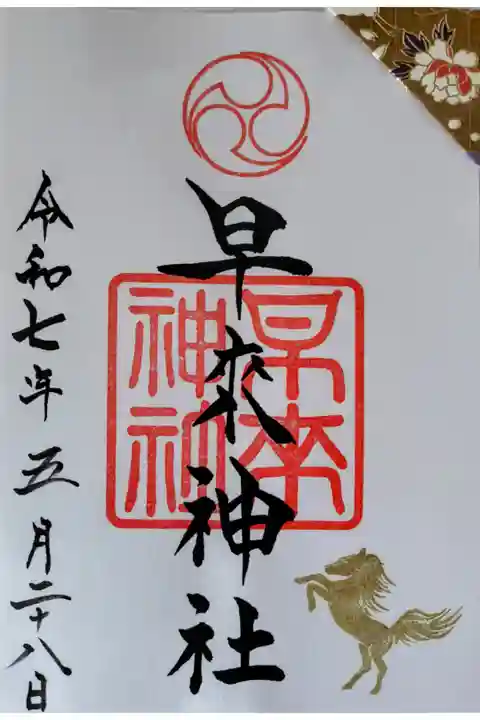 早來神社
早来
神社
令和七年五月二十八日